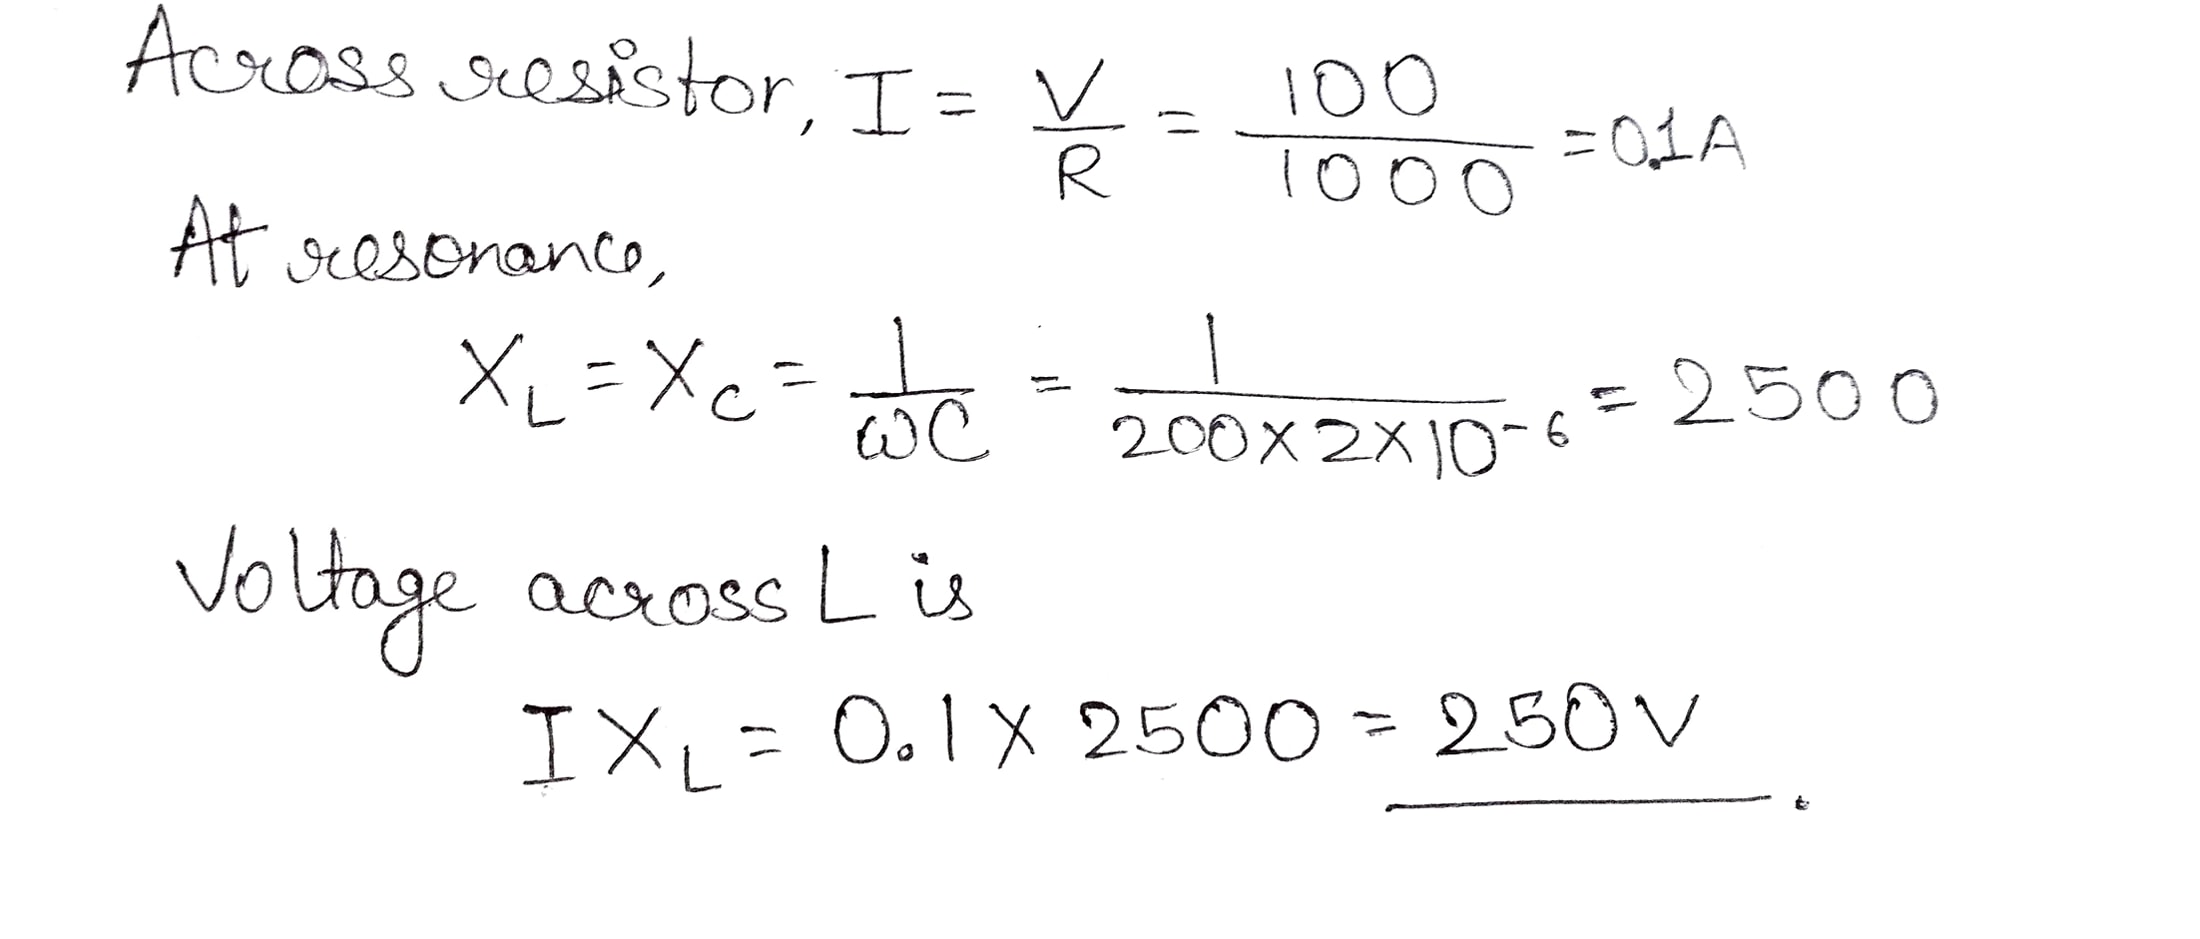 Across resistor, I = V/R = 100/1000 = 0.1A
At resonance,
X_L = X_C = 1/ωC = 1/200×2×10^-6 = 2500
Voltage across L is
IX_L = 0.1 × 2500 = 250V.